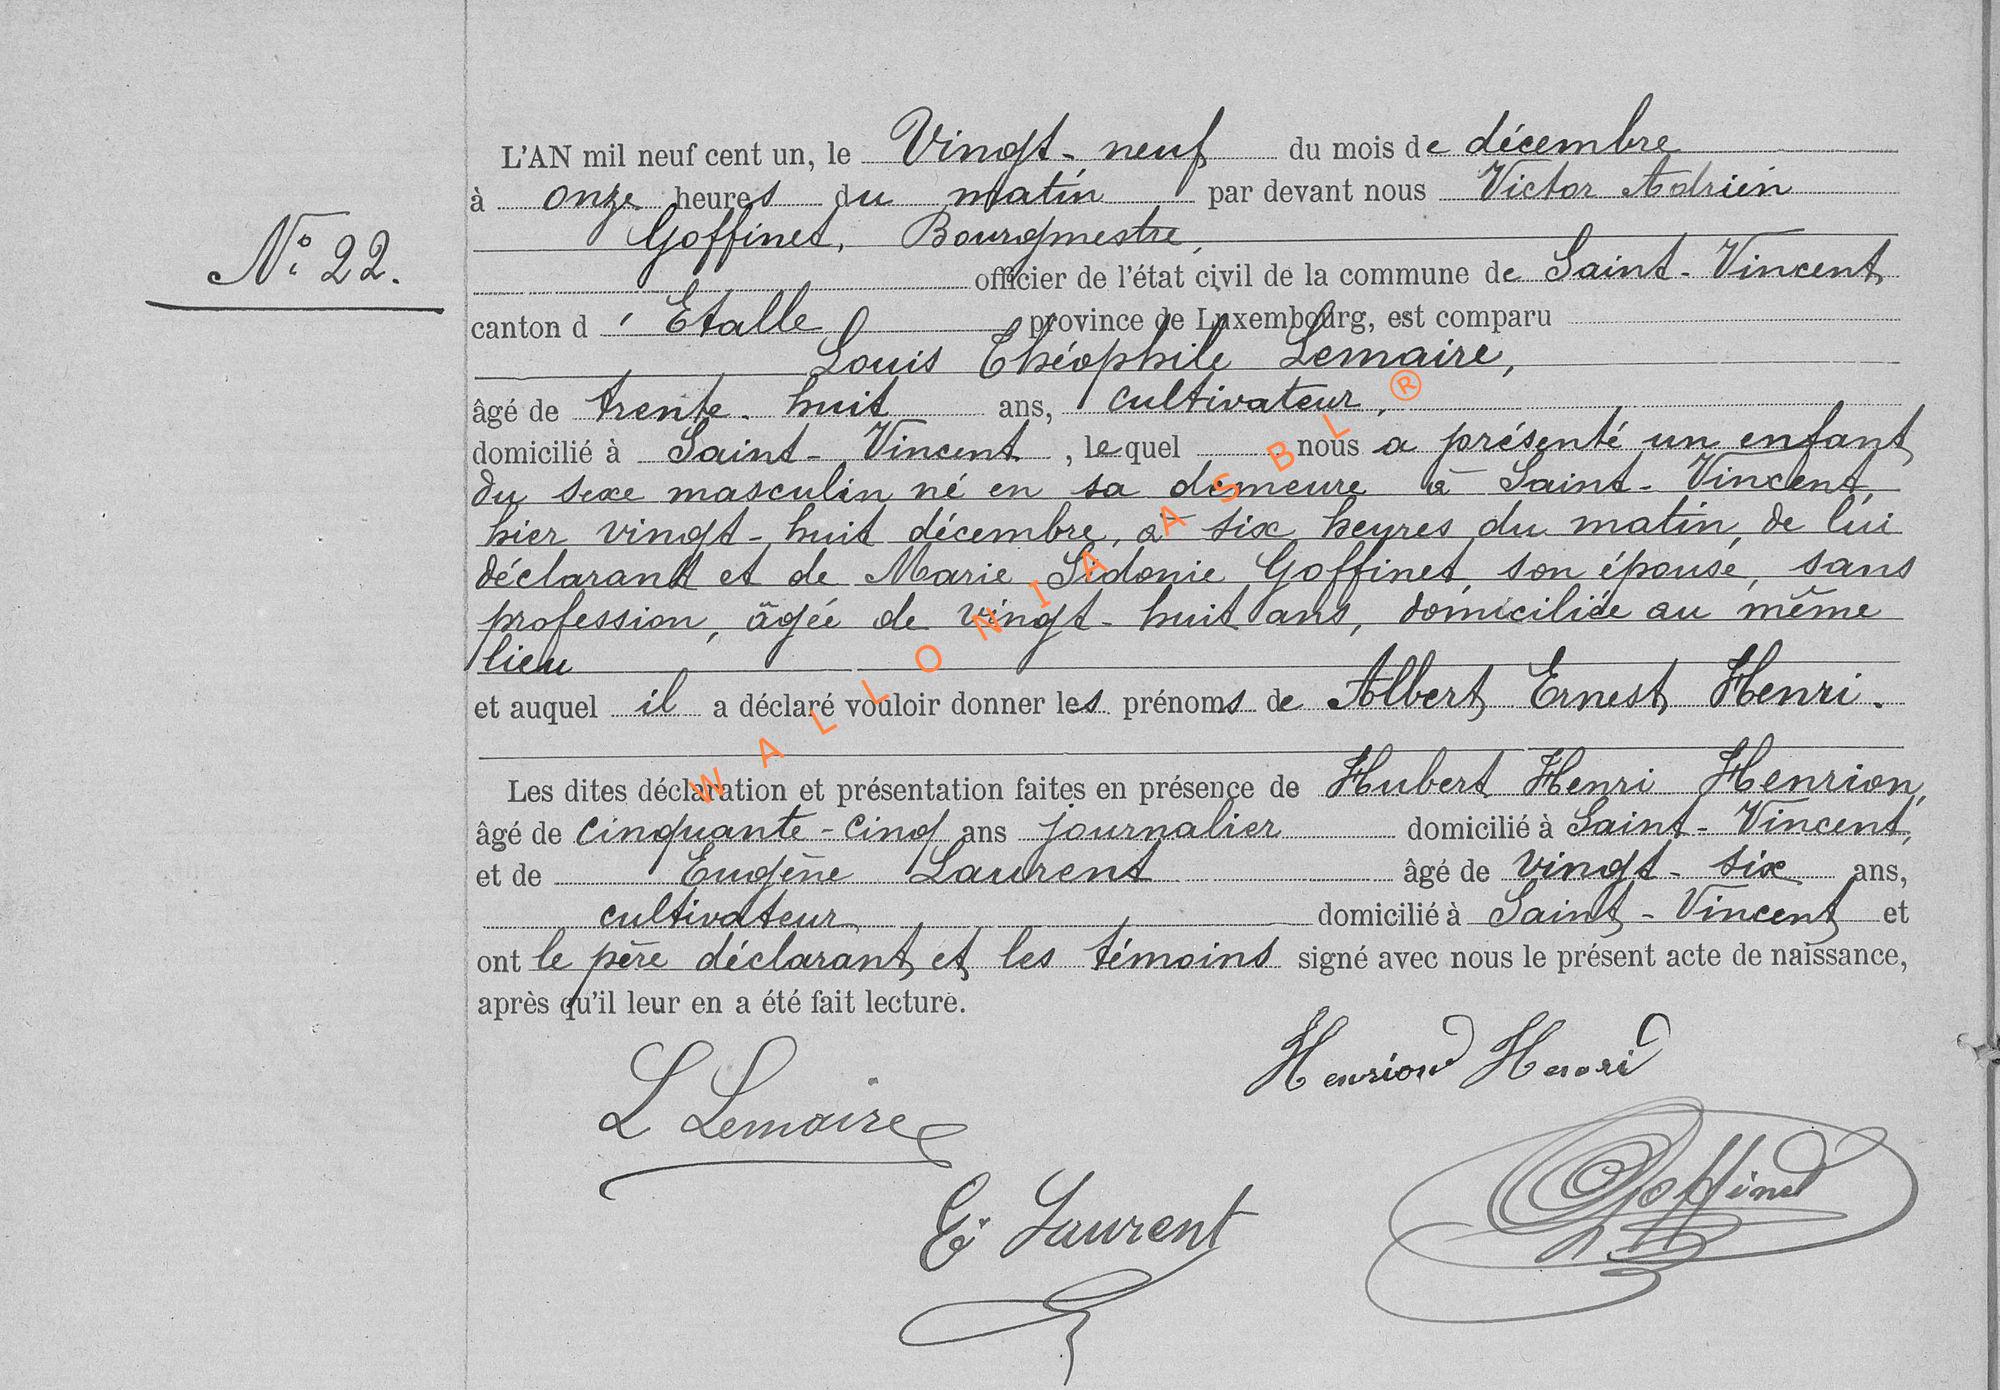 L'AN mil neuf cent un, le Vingt-neuf du mois de décembre
à onze heures du matin par devant nous Victor Adrien
Goffinet, Bourgmestre,
officier de l'état civil de la commune de Saint-Vincent
N° 22.
canton d'Etalle province de Luxembourg, est comparu
Louis Théophile Lemaire,
âgé de trente-huit ans, cultivateur,
domicilié à Saint-Vincent, lequel nous a présenté un enfant
du sexe masculin né en sa demeure à Saint-Vincent,
hier vingt-huit décembre, à six heures du matin, de lui
déclarant et de Marie Sidonie Goffinet, son épouse, sans
profession, âgée de vingt-huit ans, domiciliée au même
lieu
et auquel il a déclaré vouloir donner les prénoms de Albert Ernest Henri.
Les dites déclaration et présentation faites en présence de Hubert Henri Henrion,
âgé de cinquante-cinq ans journalier domicilié à Saint-Vincent,
et de Eugène Laurent âgé de vingt-six ans,
cultivateur domicilié à Saint-Vincent et
ont le père déclarant et les témoins signé avec nous le présent acte de naissance,
après qu'il leur en a été fait lecture.
Henrion Henri
L Lemaire
E. Laurent
Goffinet
WALLONIA ASBL ®